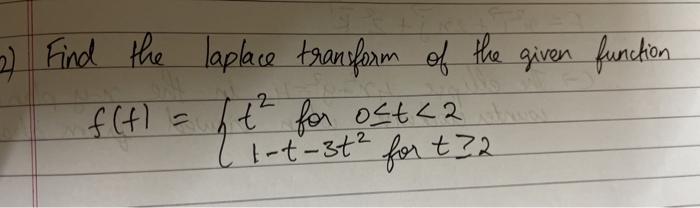 2) Find the laplace transform of the given function
f(t) = { t² for 0≤t<2
1-t-3t² for t≥2